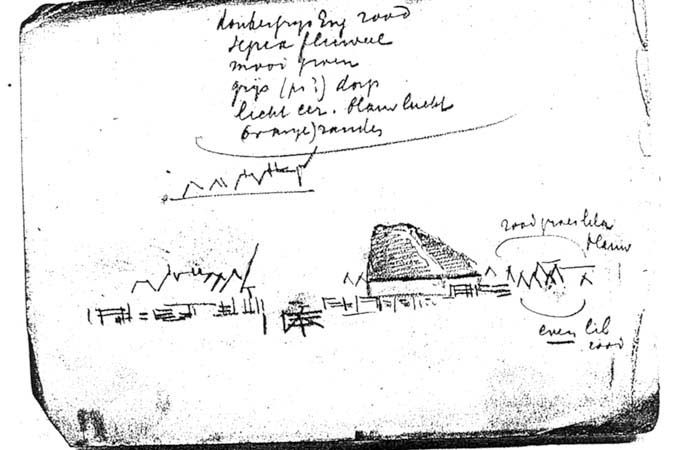 donkergrijs Eng rood
sepia fluweel
mooi groen
grijs (pr?) dorp
licht cer. blauw lucht
(oranje) randen
rood groen lila
blauw
even lib
rood